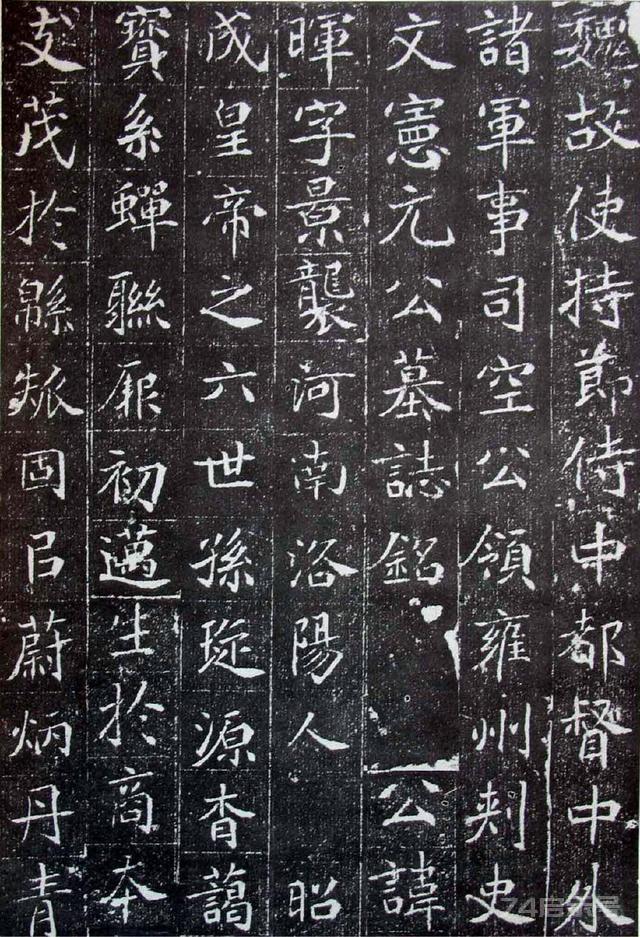 魏故使持節侍中都督中外
諸軍事司空公領雍州刾史
文憲元公墓誌銘　公諱
暉字景襲河南洛陽人　昭
成皇帝之六世孫琁源杳藹
寶系蟬聯厥初邁生於商夲
支茂於緜瓞固㠯蔚炳丹青